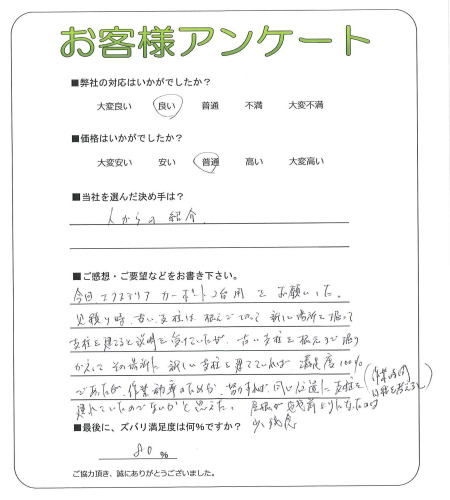 お客様アンケート
■弊社の対応はいかがでしたか？
大変良い 良い 普通 不満 大変不満
■価格はいかがでしたか？
大変安い 安い 普通 高い 大変高い
■当社を選んだ決め手は？
人からの紹介
■ご感想・ご要望などをお書き下さい。
今回エクステリア カーポート2台用をお願いした。
見積り時、古い支柱は根元で切って 新しい場所を掘って
支柱を建てると説明を受けていたが、古い支柱を根元まで掘り
かえして その場所に 新しい支柱を建てていれば 満足度100%
であったが、作業効率のためか、 同じ位置に支柱を
建れていたのでないかと思えた。
少残念
■最後に、ズバリ満足度は何%ですか？
80%
ご協力頂き、誠にありがとうございました。